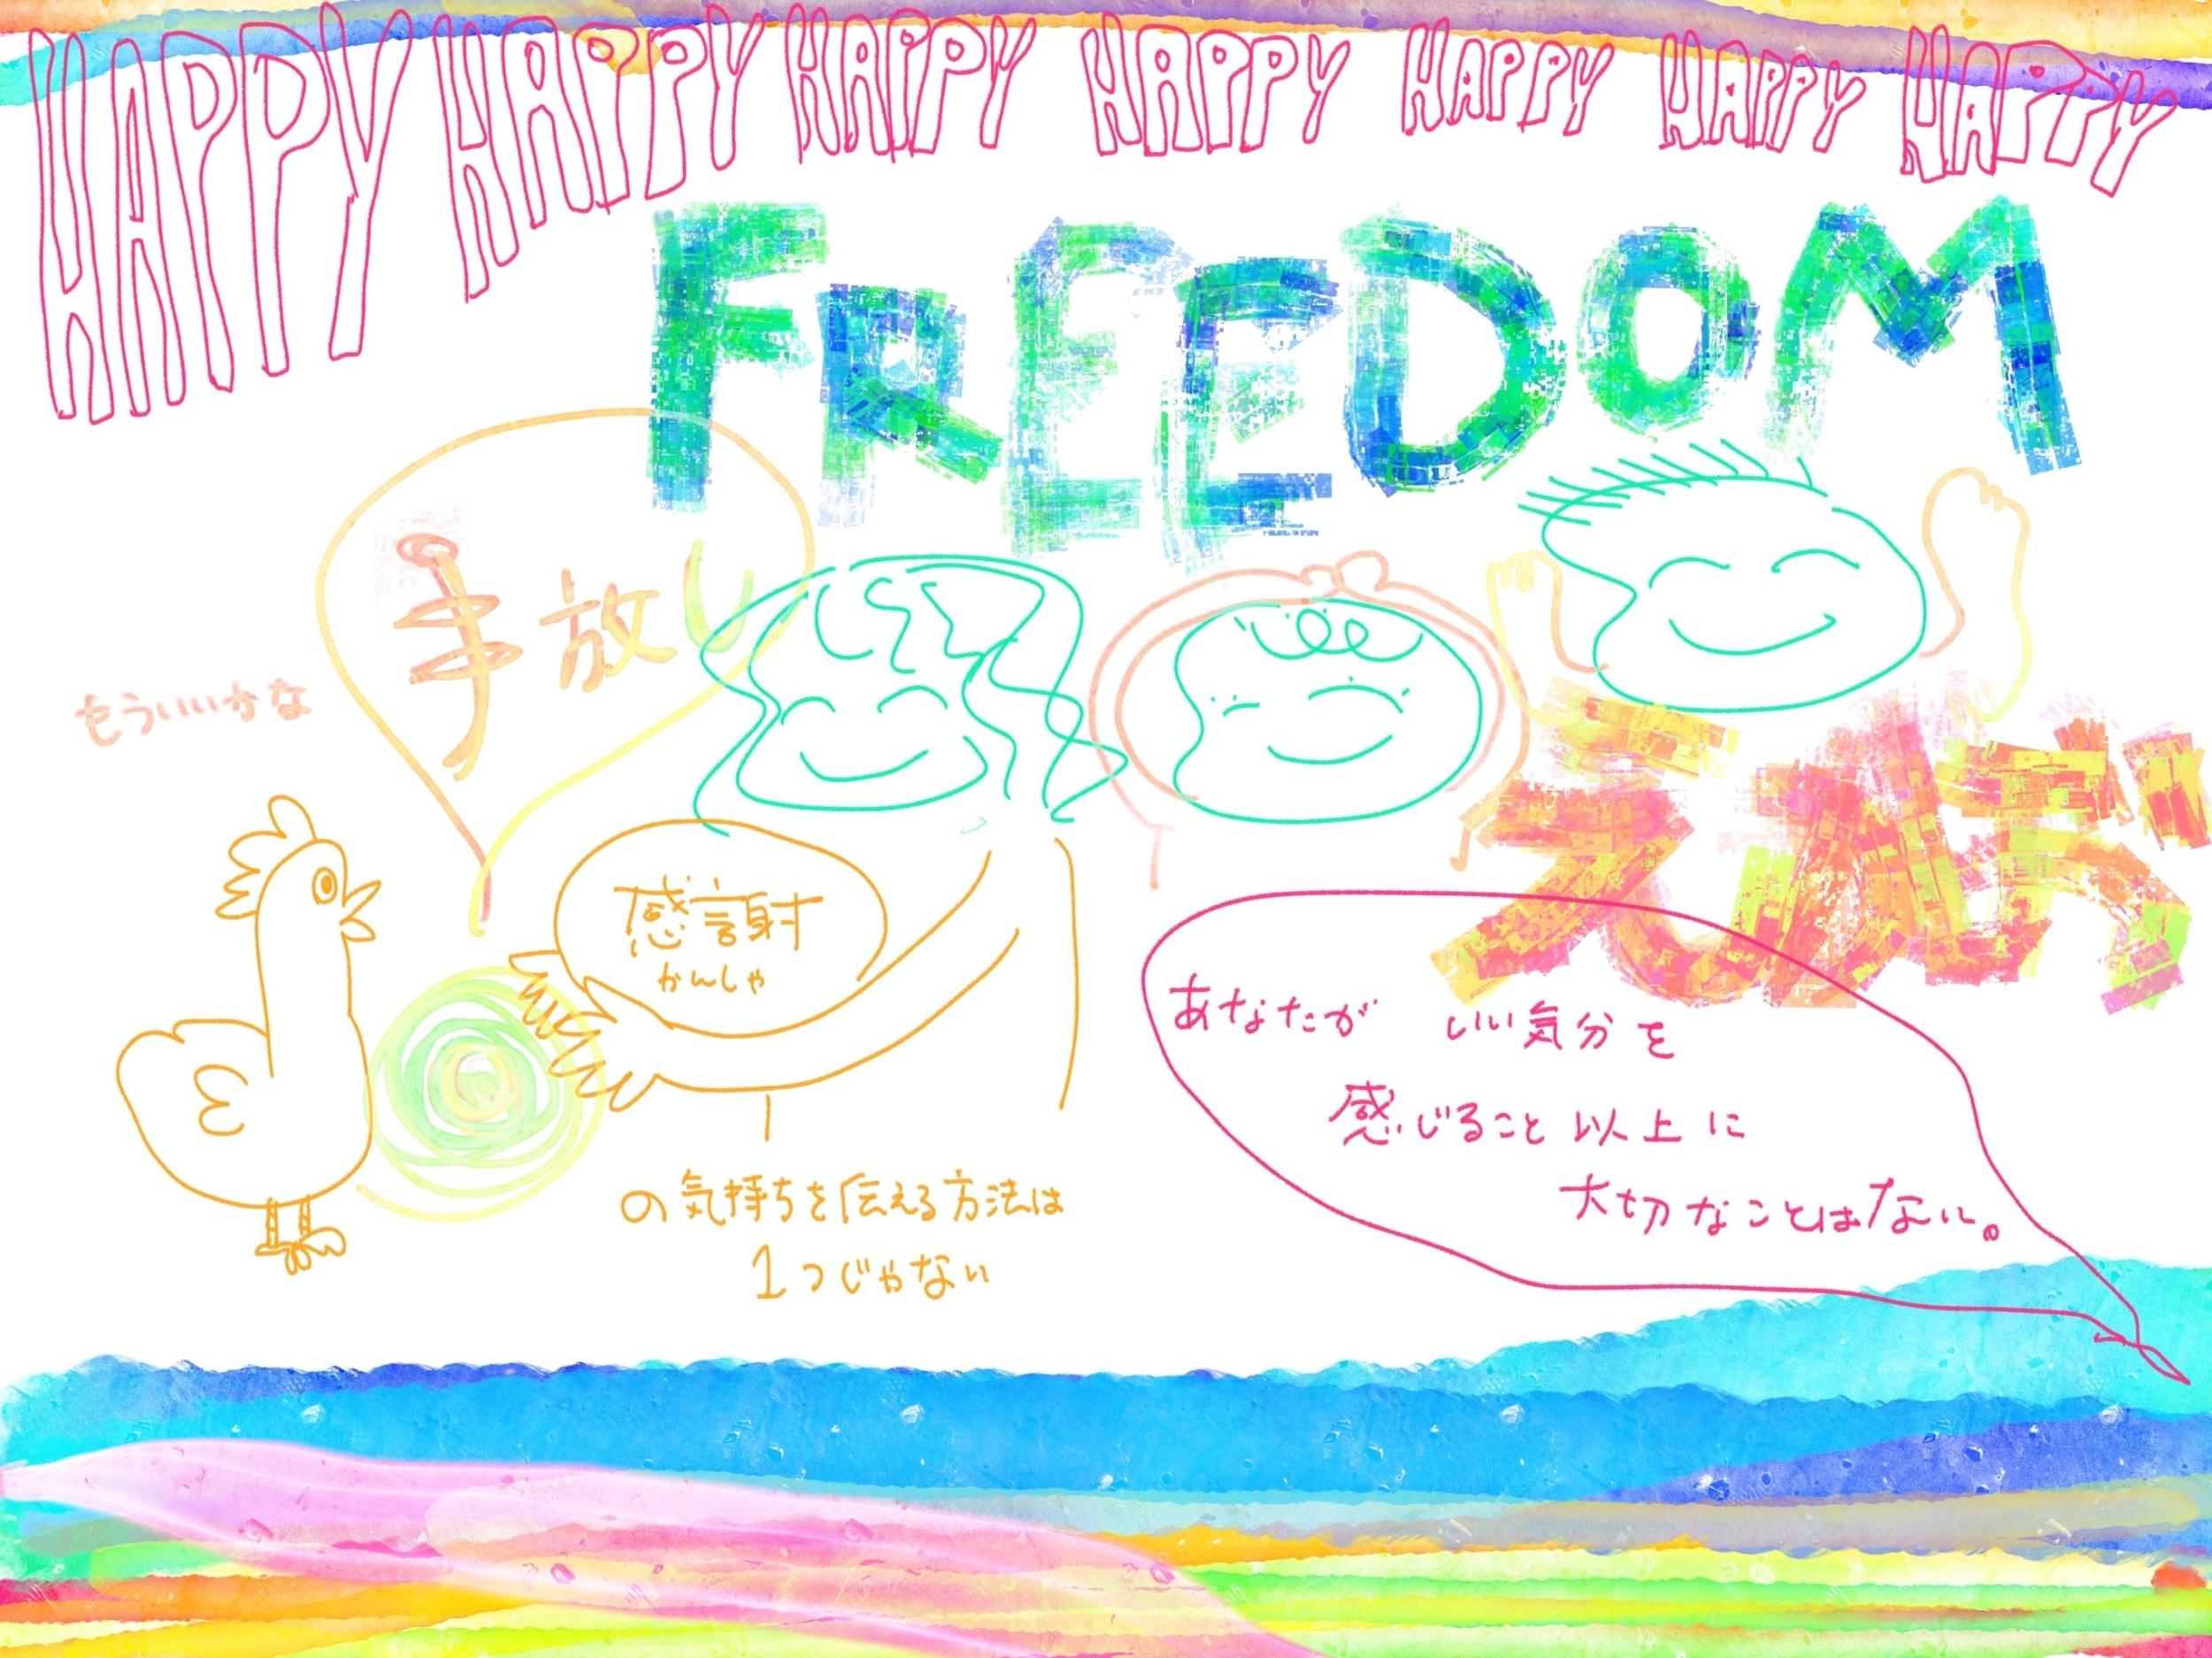 HAPPY HAPPY HAPPY HAPPY HAPPY HAPPY HAPPY
FREEDOM
手放し
もういいかな
えがお
感謝
かんしゃ
の気持ちを伝える方法は
1つじゃない
あなたが いい気分を
感じること以上に
大切なことはない。